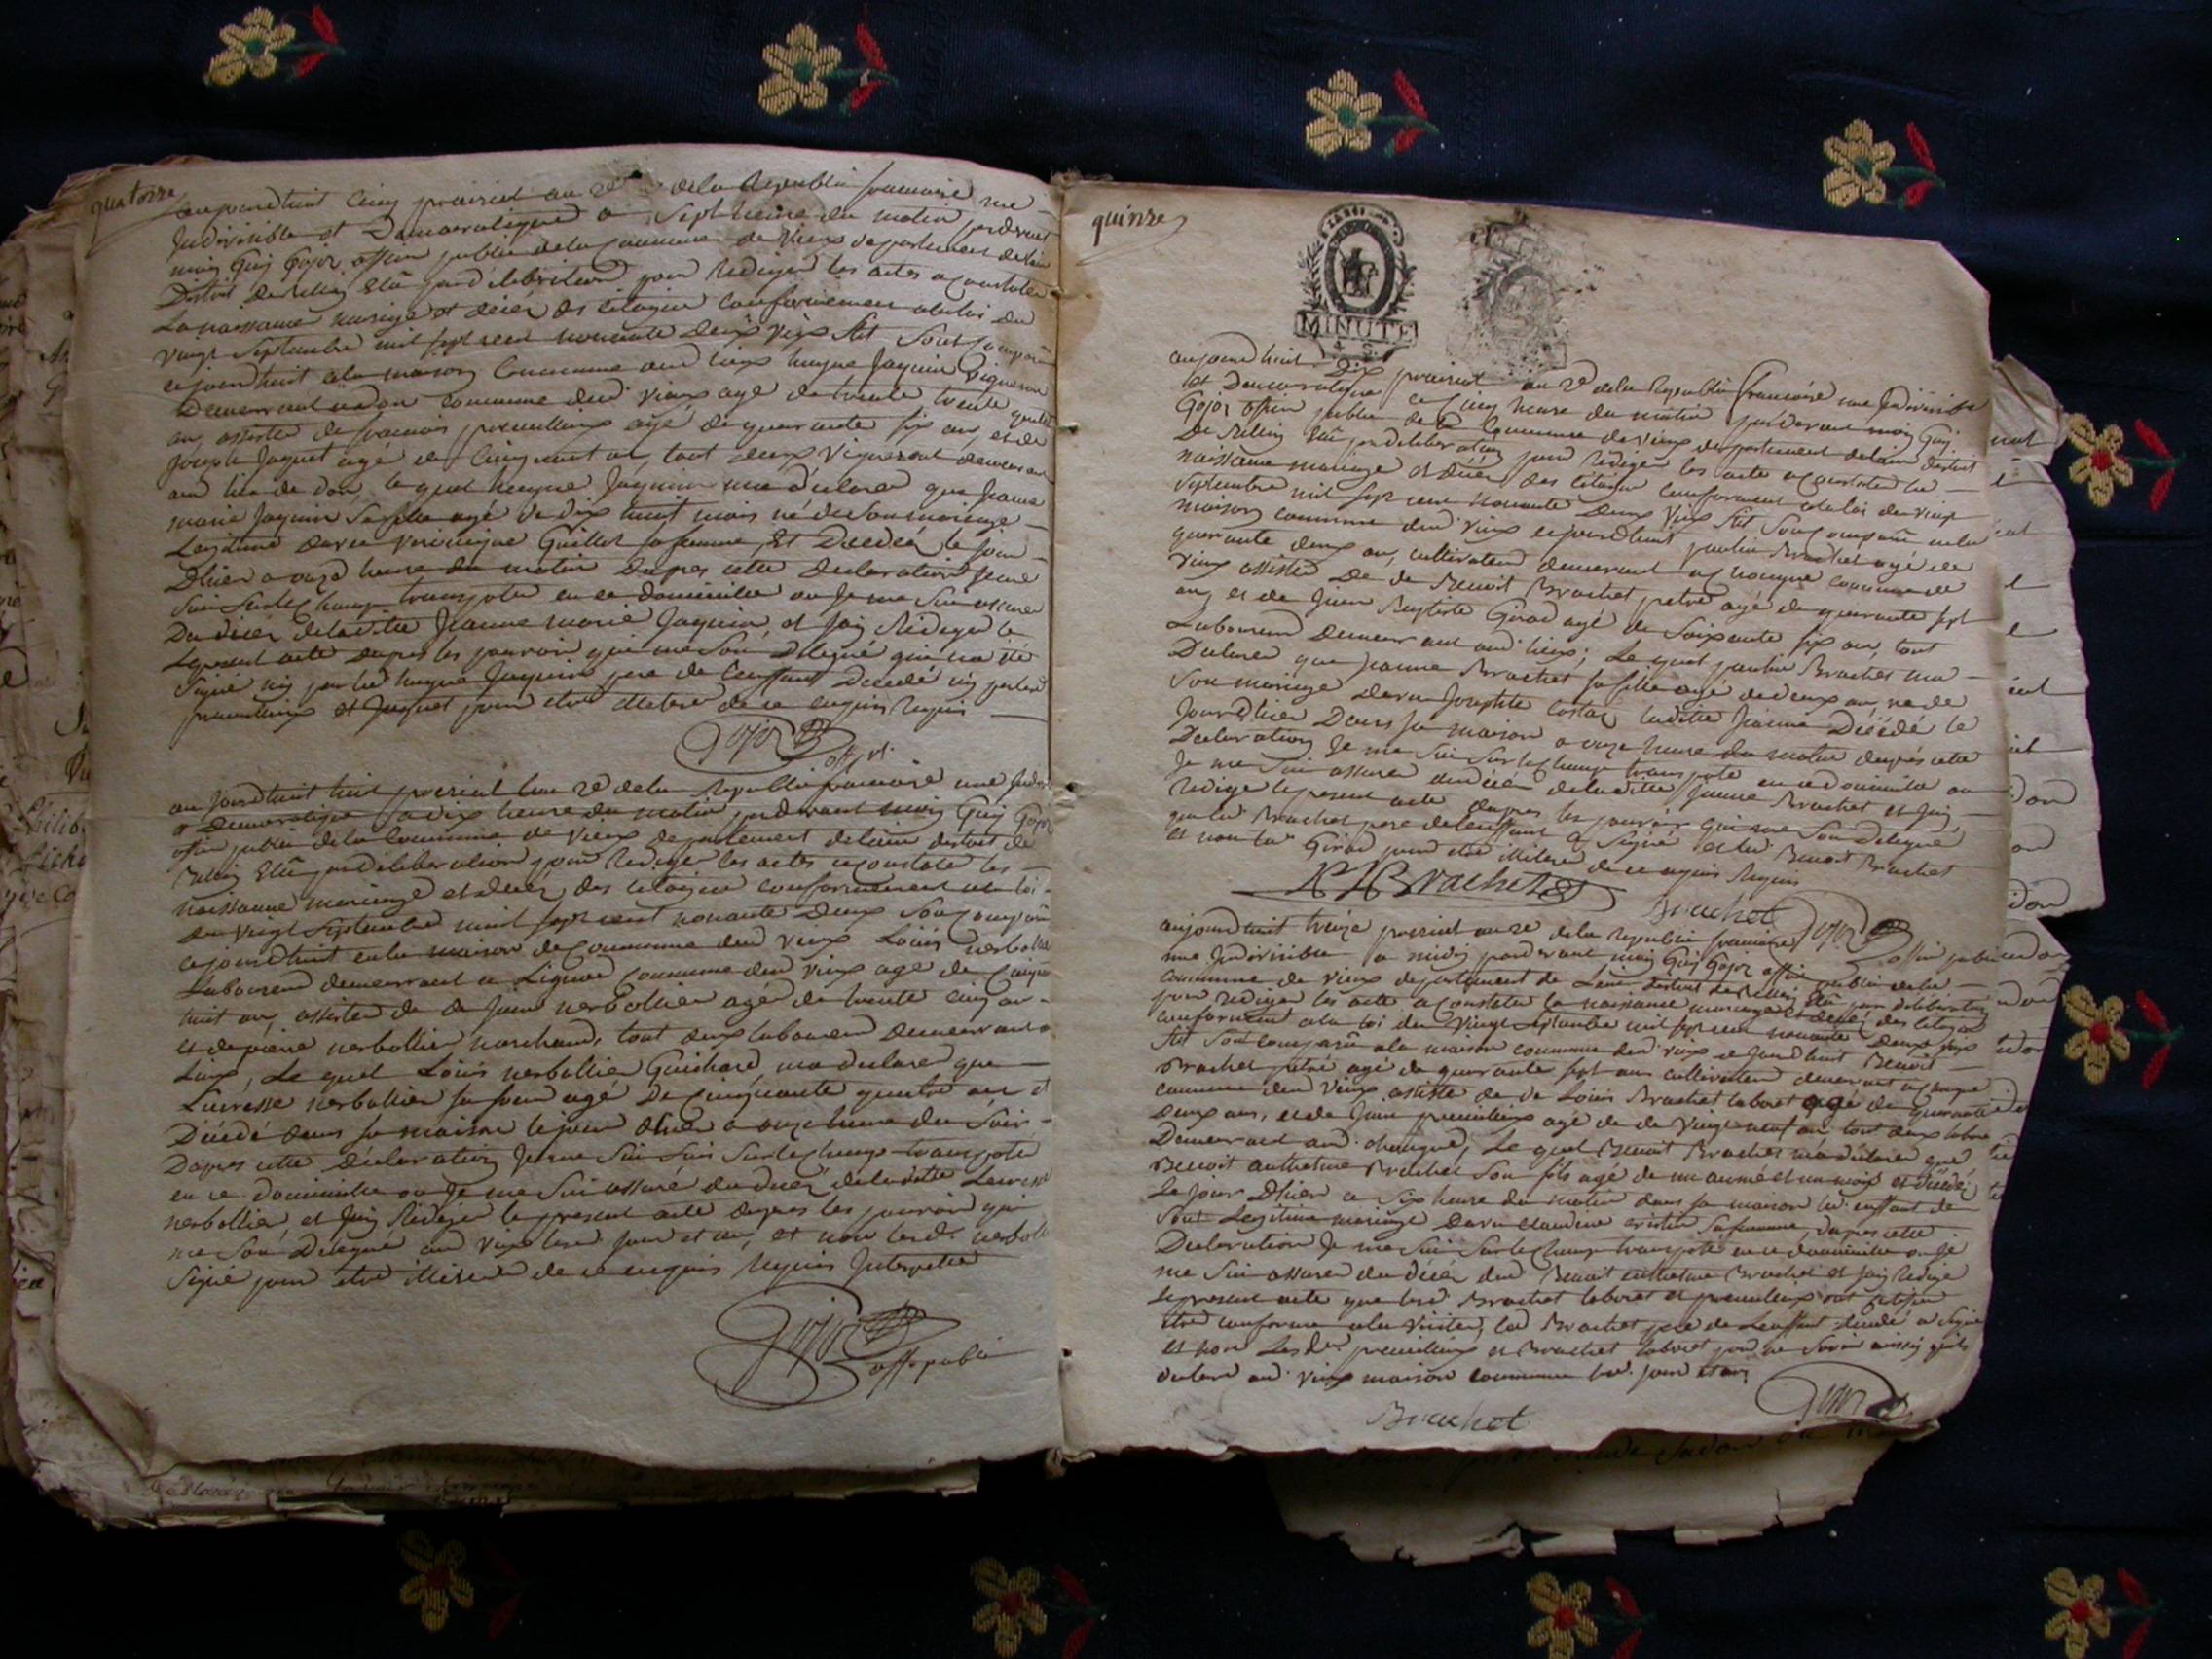 quatorze
aujourdhuit cinq prairial an 2e de la Republi francaise une
Indivisible et Democratique a Sept heure du matin pardevant
moy Guy Gojoz officier public de la Commune de Vieux departement de lain
District de Belley Elû par deliberation pour Rediger les actes a Constater
La naissance mariage et décéz des citoyens conformement a la loi du
vingt Septembre mil sept cent nonante deux vieux Stil Sont Comparû
cejourdhuit a la maison Commune dud Vieux hugue Jaquin vigneron
Demeurant a don commune dud Vieux agé de trente
ans assisté de francois premillieux agé de quarante six ans et de
Joseph Jaquet agé de cinquant an tout deux Vigneront demeurant
aud lieu de Don, le quel hugue Jaquin ma déclaré que Jeanne
marie Jaquin Sa fille agé de dix huit mois né de Son mariage
Legitime avec Guillot sa femme Est Decedéé le jour
Dhier a onze heure du matin Dapres cette Declaration Je me
Suis Sur le Champ transporté en ce domicille ou Je me Suis assuré
Du décéz de ladite Jeanne marie Jaquin et Jay Rediger le
present acte dapres les pouvoir qui me Sont Delegué qui na été
Signé ny par led hugue Jaquin pere de Lenffant Decedé ny par led
premillieux et Jaquet pour etre illiteré de ce enquis Requis
Gojoz off pl.
au Jourdhuit huit prerial lan 2e de la Republi francaise une Indivi
et Democratique a dix heure du matin pardevant moy Guy Gojoz
offier public de la Commune de Vieux departement de lain district de
Belley Elû par deliberation pour Rediger les actes a Constater les
naissanne mariage et décéz des citoyens conformement a la loi
du vingt Septembre mil sept cent nonante Deux Sont Comparû
cejourdhuit en la maison de Commune dud Vieux Loüis nerbollier
Laboureur demeurant a Lignod Commune dud Vieux agé de Cinquante
huit an, assister de de Jean nerbollier agé de trente cinq an
et de piere nerbollier marchand, tout deux laboureur demeurant
Le quel Loüis nerbollier Guichard ma declaré que
Lucresse nerbollier sa soeur agé De Cinquante quatre an et
Décédé dans sa maison le jour dhier a onze heure du Soir
Dapres cette déclaration Je me Suis Sur le Champ transporté
en ce domicille ou Je me Suis assuré du décéz de ladite Lucresse
nerbollier, et Jay Rediger le present acte dapres les pouvoir qui
me Sont Delegué aud Vieux lesd jour et an, et non lesd. nerbollier
Signé pour etre illiteré de ce enquis Requis Interpellé
Gojoz off. public
quinze
MINUTE
4 S.
aujourdhuit Dix prairial an 2e de la Republi francaise une Indivisible
et Democratique a Cinq heure du matin pardevant moy Guy
Gojoz offier public de la Commune de Vieux departement de lain district
De Belley Elû par deliberation pour Rediger les acte a Constater la
naissanne mariage et décéz des citoyen conforment a la loi du vingt
Septembre mil sept cent nonante Deux Vieux Stil Sont Comparû en la
maison commune dud Vieux cejourdhuit paulin Brachet agé de
quarante deux an, cultivateur demeurant a Chongne Commune de
Vieux assister De de Benoit Brachet petre agé de quarante sept
an, et de Jean Baptiste Girod agé de Soixante six an, tout
Laboureur Demeurant aud lieux; Le quel paulin Brachet ma
Declaré que Jeanne Brachet sa fille agé de deux an, né de
Son mariage Davec Josephte Costaz ladite Jeanne Décédé le
Jourdhier Dans sa maison a onze heure du matin dapres cette
Declaration Je me Suis Sur le Champ transporté en ce domicille ou
Je me Suis assuré du décéz de ladite Jeanne Brachet et Jay
Rediger le present acte dapres les pouvoir qui me Sont Delegué
que led Brachet pere de lenffant a Signé et led Benoit Brachet
et non led Girod pour etre illiteré de ce enquis Requis
Brachet
Brachet Gojoz offier public
aujourdhuit treize prerial an 2e de la Republi francaise
une Indivisible a midy pardevant moy Guy Gojoz offier public de la
Commune de Vieux departement de Lain District de Belley Elû par deliberation
pour Rediger les acte a Constater la naissanne mariage et décéz des citoyen
conforment a la loi du Vingt Septembre mil sept cent nonante Deux Vieux
Stil Sont Comparû a la maison commune dud Vieux ce Jourdhuit Benoit
Brachet petré agé de quarante sept an cultivateur demeurant a Chongne
Commune dud Vieux assisté de de Louis Brachet laboret agé de quarante
Deux ans, et de Jean premillieux agé de de Vingt neuf an tout deux labou
Demeurant aud. Chongne, Le quel Benoit Brachet ma déclaré que
Benoit anthelme Brachet Son fils agé de un année et un mois et décédé
Le Jour Dhier a Six heure du matin dans sa maison led. enffant de
Sont Legitime mariage Davec Claudine Sa femme, dapres cette
Declaration Je me Suis Sur le Champ transporté en ce domicille ou Je
me Suis assuré du décéz dud Benoit anthelme Brachet et Jay Redigé
le present acte que lesd Brachet laboret et premillieux ont attesté
etre conforme a la Verité, led Brachet pere de Lenffant décédé a Signé
et non Lesd. premillieux et Brachet laboret pour ne Savoir ainsy quils
declaré aud. Vieux maison commune lesd. Jour et an
Brachet Gojoz